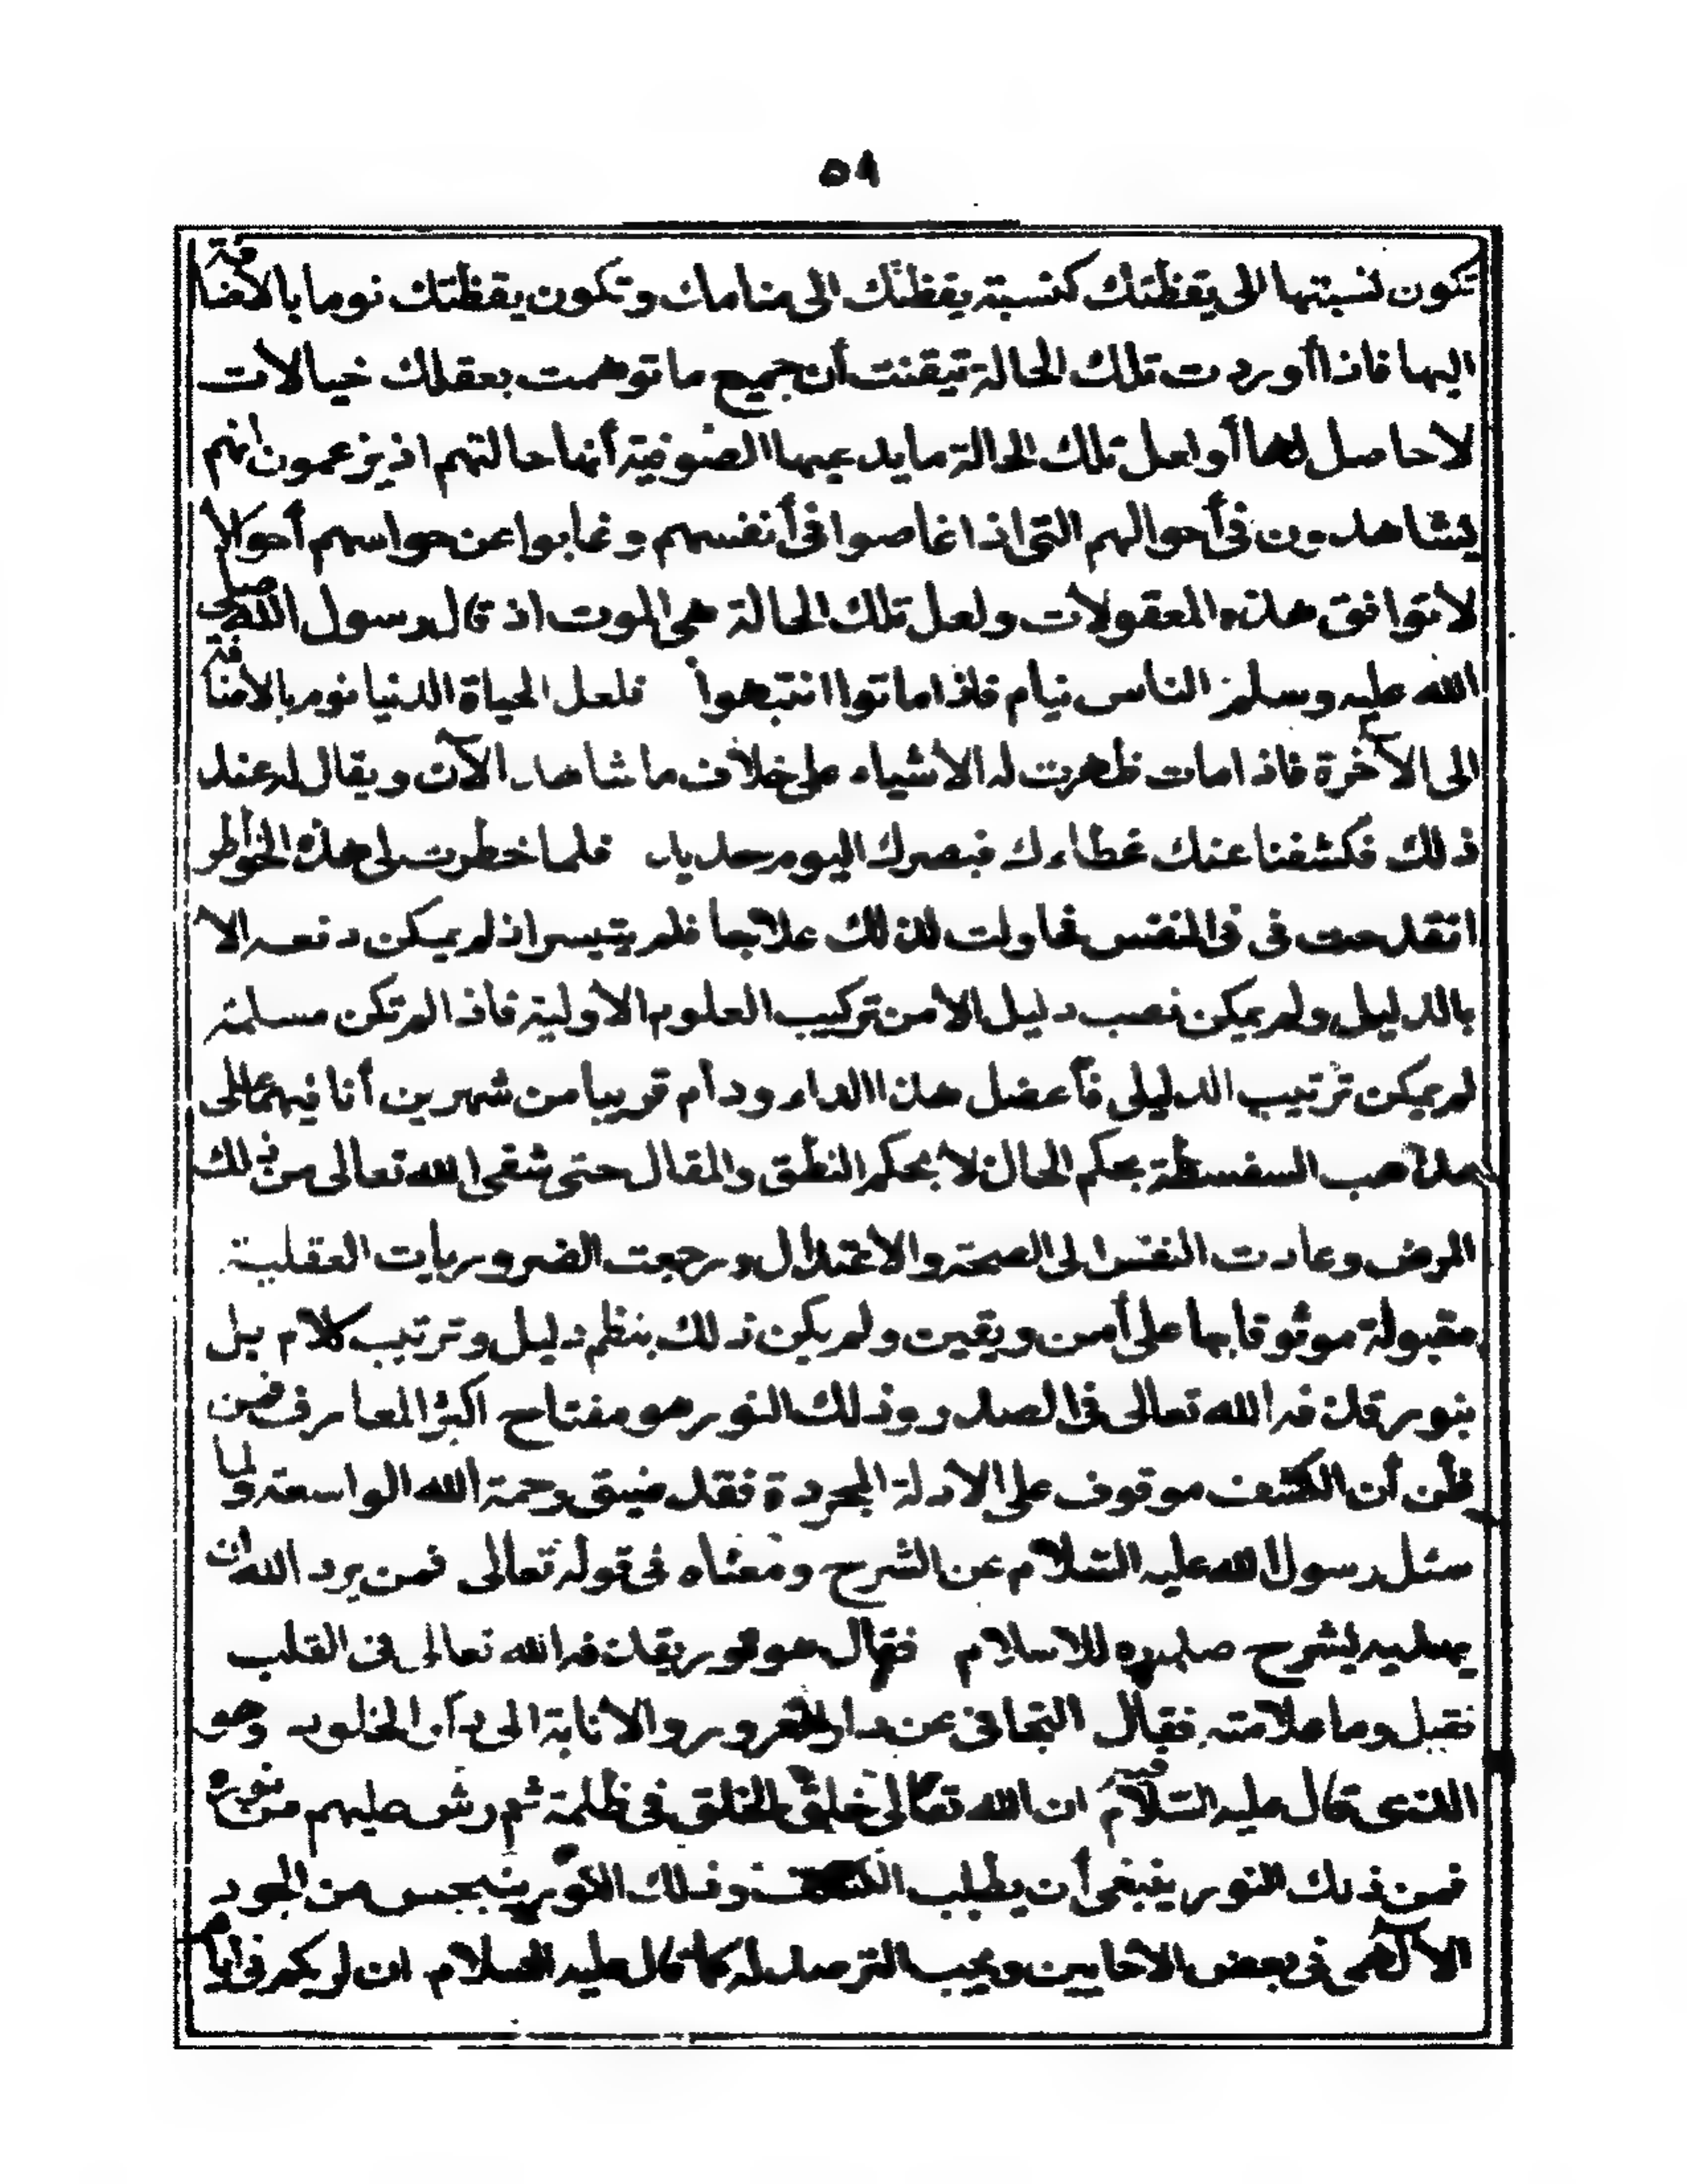 ٥٨
تكون نسبتها الى يقظتك كنسبة يقظتك الى منامك وتكون يقظتك نوما بالاضافة
اليها فاذا أوردت تلك الحالة تيقنت أن جميع ما توهمت بعقلك خيالات
لا حاصل لها أو لعل تلك الحالة ما يدعيها الصوفية أنها حالتهم اذ يزعمون انهم
يشاهدون فى أحوالهم التى اذا غاصوا فى أنفسهم وغابوا عن حواسهم أحوالا
لا توافق هذه المعقولات ولعل تلك الحالة هى الموت اذ قال رسول الله صلى
الله عليه وسلم الناس نيام فاذا ماتوا انتبهوا فلعل الحياة الدنيا نوم بالاضافة
الى الآخرة فاذا مات ظهرت له الأشياء على خلاف ما شاهد الآن ويقال له عند
ذلك فكشفنا عنك غطاءك فبصرك اليوم حديد فلما خطرت لى هذه الخواطر
انقدحت فى فى النفس فحاولت لذلك علاجا فلم يتيسر اذ لم يمكن دفعه الا
بالدليل ولم يمكن نصب دليل الا من تركيب العلوم الأولية فاذا لم تكن مسلمة
لم يمكن ترتيب الدليل فأعضل هذا الداء ودام قريبا من شهرين أنا فيهما على
مذهب السفسطة بحكم الحال لا بحكم النطق والمقال حتى شفى الله تعالى من ذلك
المرض وعادت النفس الى الصحة والاعتدال ورجعت الضروريات العقلية
مقبولة موثوقا بها على أمن ويقين ولم يكن ذلك بنظم دليل وترتيب كلام بل
بنور قذفه الله تعالى فى الصدر وذلك النور هو مفتاح اكثر المعارف فمن
ظن أن الكشف موقوف على الادلة المجردة فقد ضيق رحمة الله الواسعة ولما
سئل رسول الله عليه السلام عن الشرح ومعناه فى قوله تعالى فمن يرد الله ان
يهديه يشرح صدره للاسلام فقال هو نور يقذفه الله تعالى فى القلب
فقيل وما علامته فقال التجافى عن دار الغرور والانابة الى دار الخلود وهو
الذى قال عليه السلام فيه ان الله تعالى خلق الخلق فى ظلمة ثم رش عليهم من نوره
فمن ذلك النور ينبغى أن يطلب الكشف وذلك النور ينبجس من الجود
الآلهى فى بعض الاحايين ويجب الترصد له كما قال عليه السلام ان لربكم فى أيام